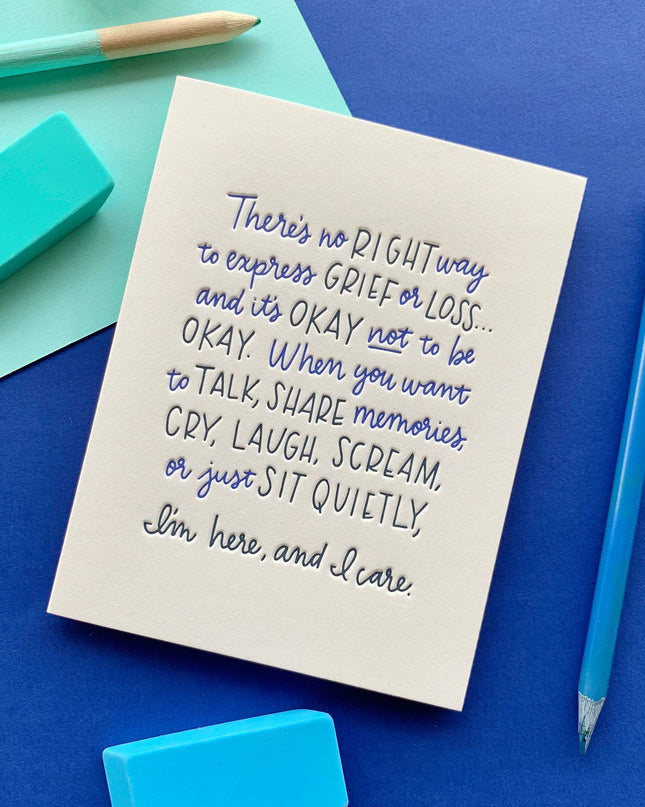 There's no RIGHT way
to express GRIEF or LOSS...
and it's OKAY not to be
OKAY. When you want
to TALK, SHARE memories,
CRY, LAUGH, SCREAM,
or just SIT QUIETLY,
I'm here, and I care.